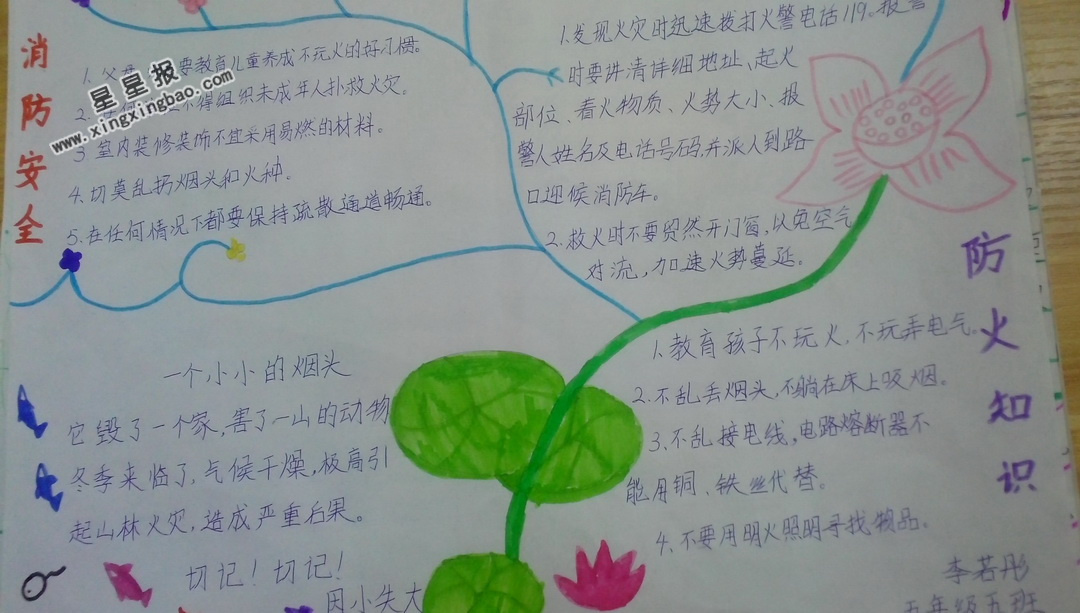 消防安全
1. 父 要教育儿童养成不玩火的好习惯。
2. 不得组织未成年人扑救火灾。
3 室内装修装饰不宜采用易燃的材料。
4. 切莫乱扔烟头和火种。
5. 在任何情况下都要保持疏散通道畅通。
星星报
www.xingxingbao.com
1.发现火灾时迅速拨打火警电话119。报警
时要讲清详细地址、起火
部位、着火物质、火势大小、报
警人姓名及电话号码,并派人到路
口迎候消防车。
2.救火时不要贸然开门窗,以免空气
对流,加速火势蔓延。
防火知识
一个小小的烟头
它毁了一个家,害了一山的动物
冬季来临了,气候干燥,极高引
起山林火灾,造成严重后果。
切记!切记!
因小失大
1.教育孩子不玩火,不玩弄电气。
2.不乱丢烟头,不躺在床上吸烟。
3.不乱接电线,电路熔断器不
能用铜、铁丝代替。
4.不要用明火照明寻找物品。
李若彤
五年级五班